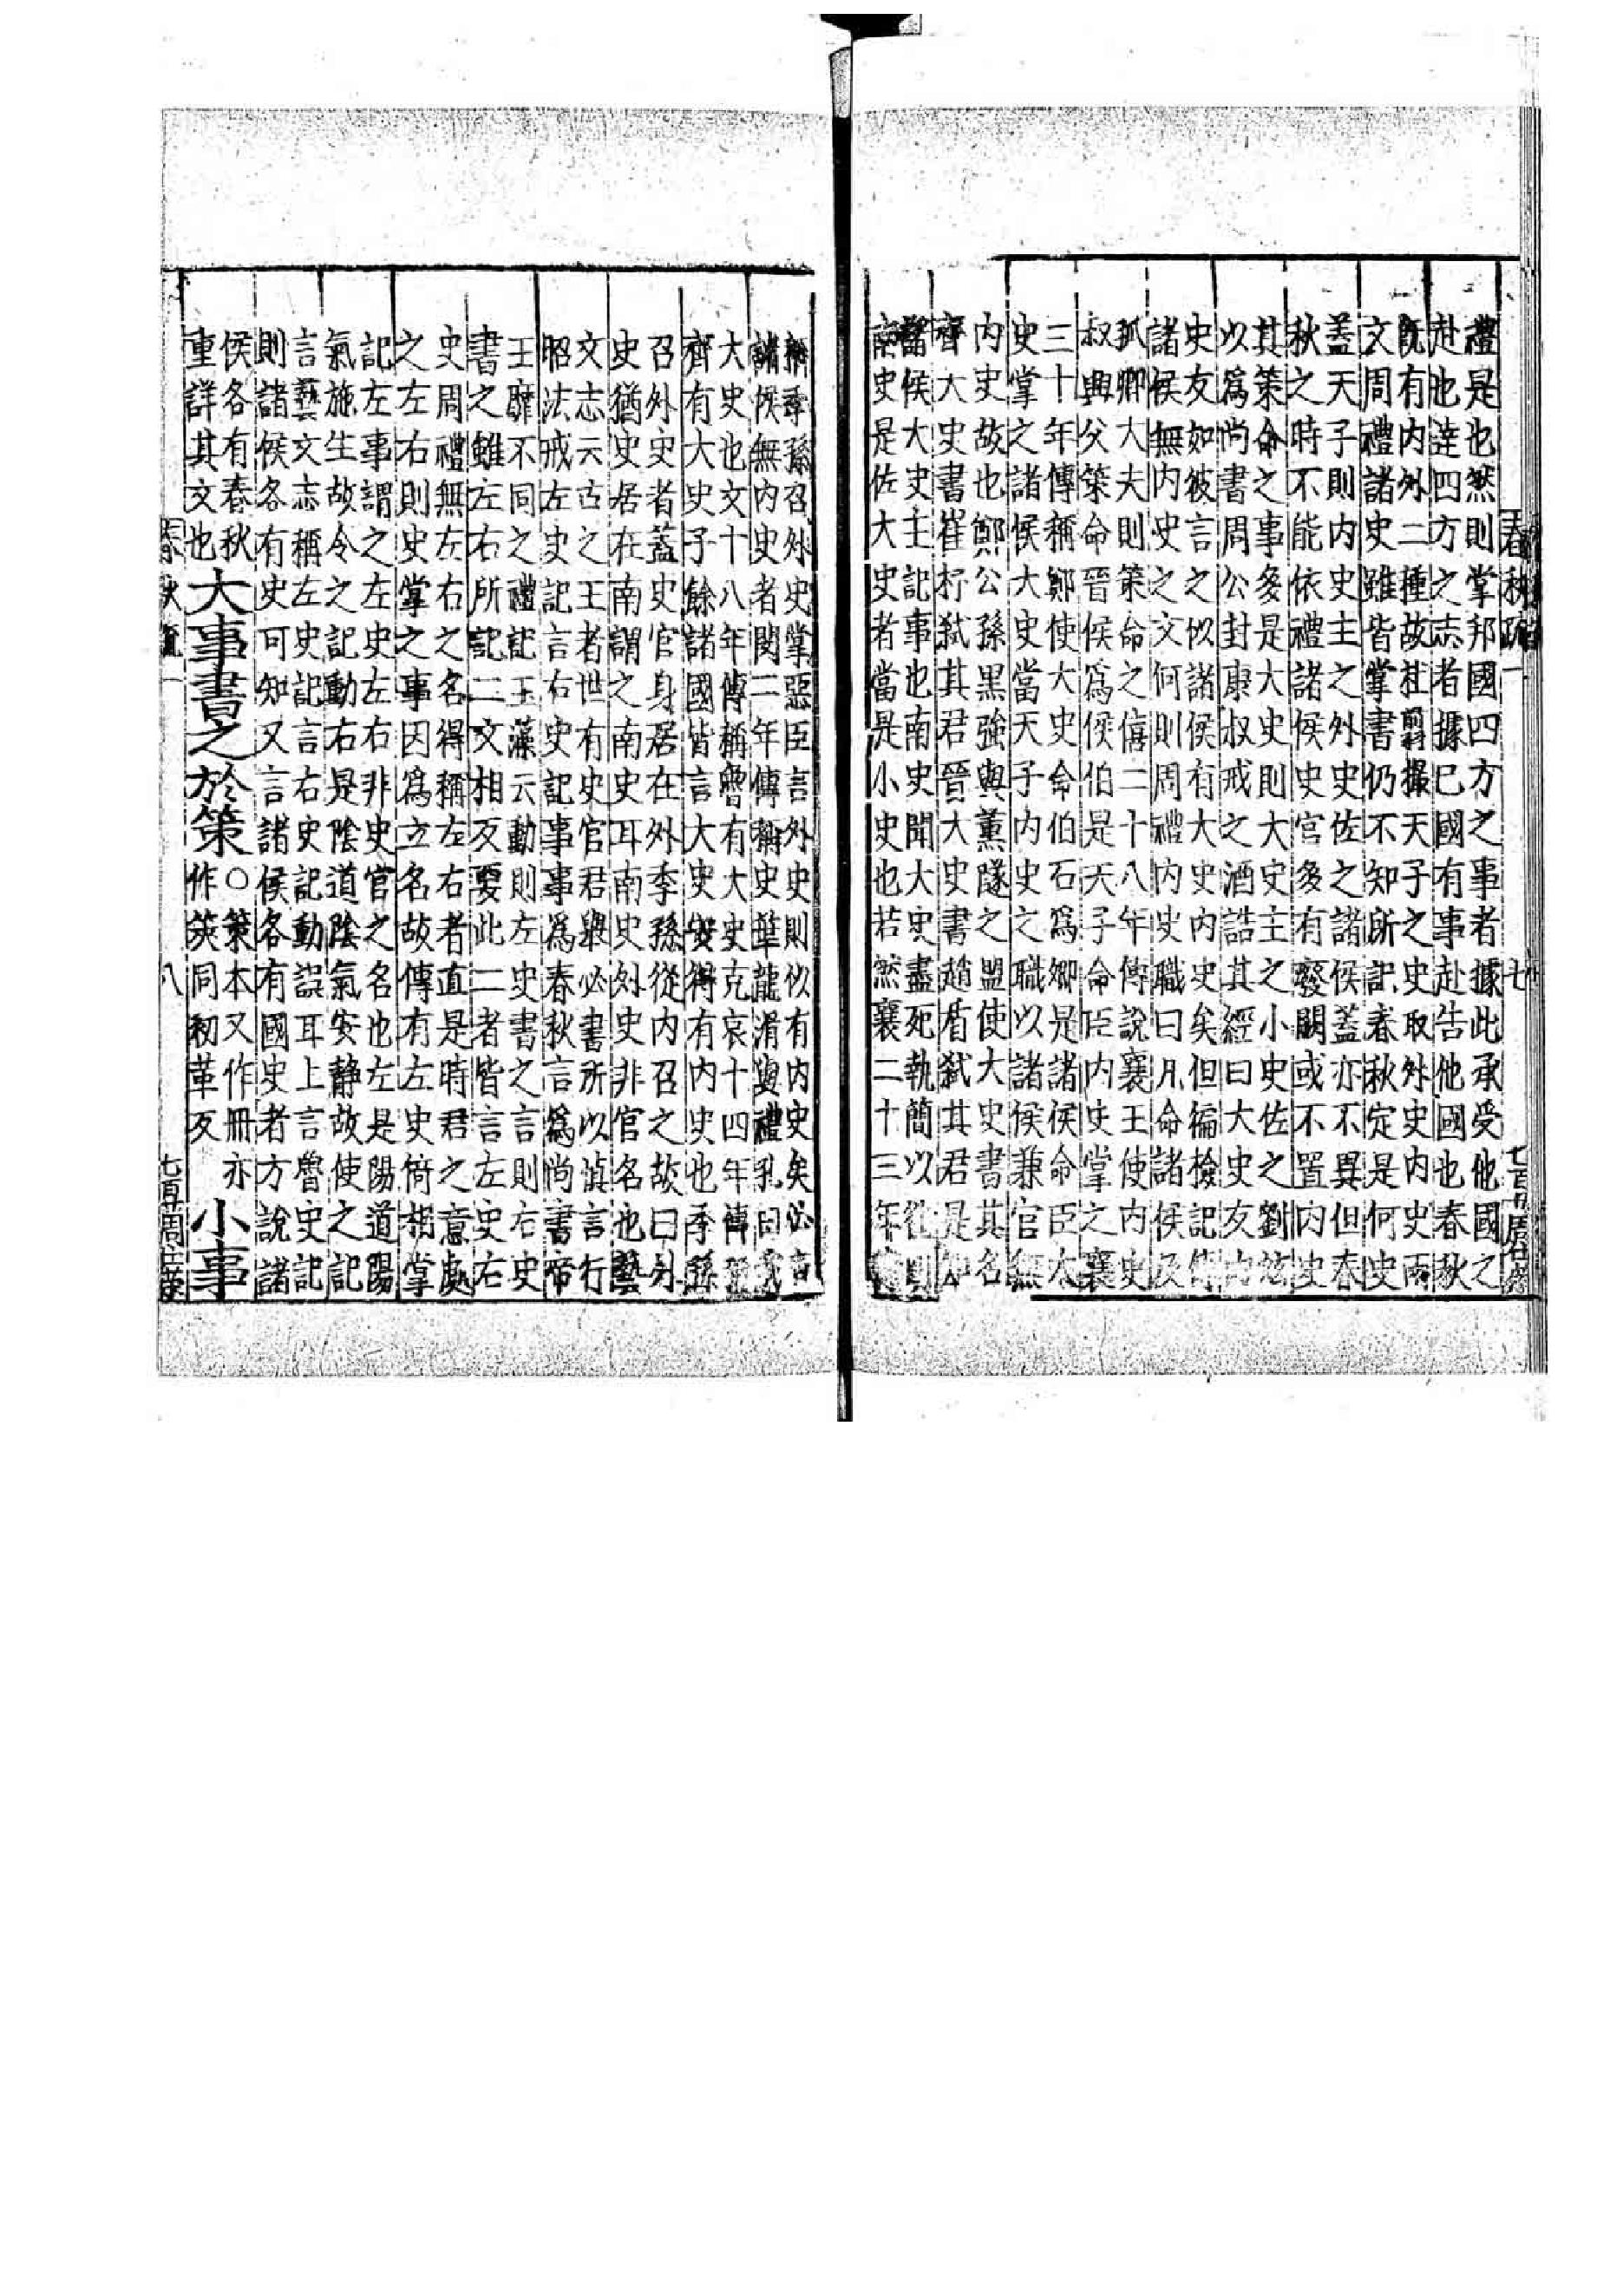 春秋疏一
七
禮是也然則掌邦國四方之事者據此承受他國之
赴也達四方之志者據己國有事赴告他國也春秋
既有內外二種故杜翦撮天子之史取外史內史兩
文周禮諸史雖皆掌書仍不知所記春秋定是何史
蓋天子則內史主之外史佐之諸侯蓋亦不異但春
秋之時不能依禮諸侯史官多有廢闕或不置內史
其策命之事多是大史則大史主之小史佐之劉炫
以爲尚書周公封康叔戒之酒誥其經曰大史友內
史友如彼言之似諸侯有大史內史矣但徧檢記傳
諸侯無內史之文何則周禮內史職曰凡命諸侯及
孤卿大夫則策命之僖二十八年傳說襄王使內史
叔興父策命晉侯爲侯伯是天子命臣內史掌之襄
三十年傳稱鄭使大史命伯石爲卿是諸侯命臣大
史掌之諸侯大史當天子內史之職以諸侯兼官無
內史故也鄭公孫黑強與薰隧之盟使大史書其名
齊大史書崔杼弑其君晉大史書趙盾弑其君是知
諸侯大史主記事也南史聞大史盡死執簡以往則
南史是佐大史者當是小史也若然襄二十三年傳
稱季孫召外史掌惡臣言外史則似有內史矣必言
諸侯無內史者閔二年傳稱史華龍滑與禮孔曰我
大史也文十八年傳稱魯有大史克哀十四年傳稱
齊有大史子餘諸國皆言大史安得有內史也季孫
召外史者蓋史官身居在外季孫從內召之故曰外
史猶史居在南謂之南史耳南史外史非官名也藝
文志云古之王者世有史官君舉必書所以愼言行
昭法戒左史記言右史記事事爲春秋言爲尚書帝
王靡不同之禮記玉藻云動則左史書之言則右史
書之雖左右所記二文相反要此二者皆言左史右
史周禮無左右之名得稱左右者直是時君之意處
之左右則史掌之事因爲立名故傳有左史倚相掌
記左事謂之左史左右非史官之名也左是陽道陽
氣施生故令之記動右是陰道陰氣安靜故使之記
言藝文志稱左史記言右史記動誤耳上言魯史記
則諸侯各有史可知又言諸侯各有國史者方說諸
侯各有春秋
重詳其文也
大事書之於策
○策本又作冊亦
作筴同初革反
小事
春秋疏一
八